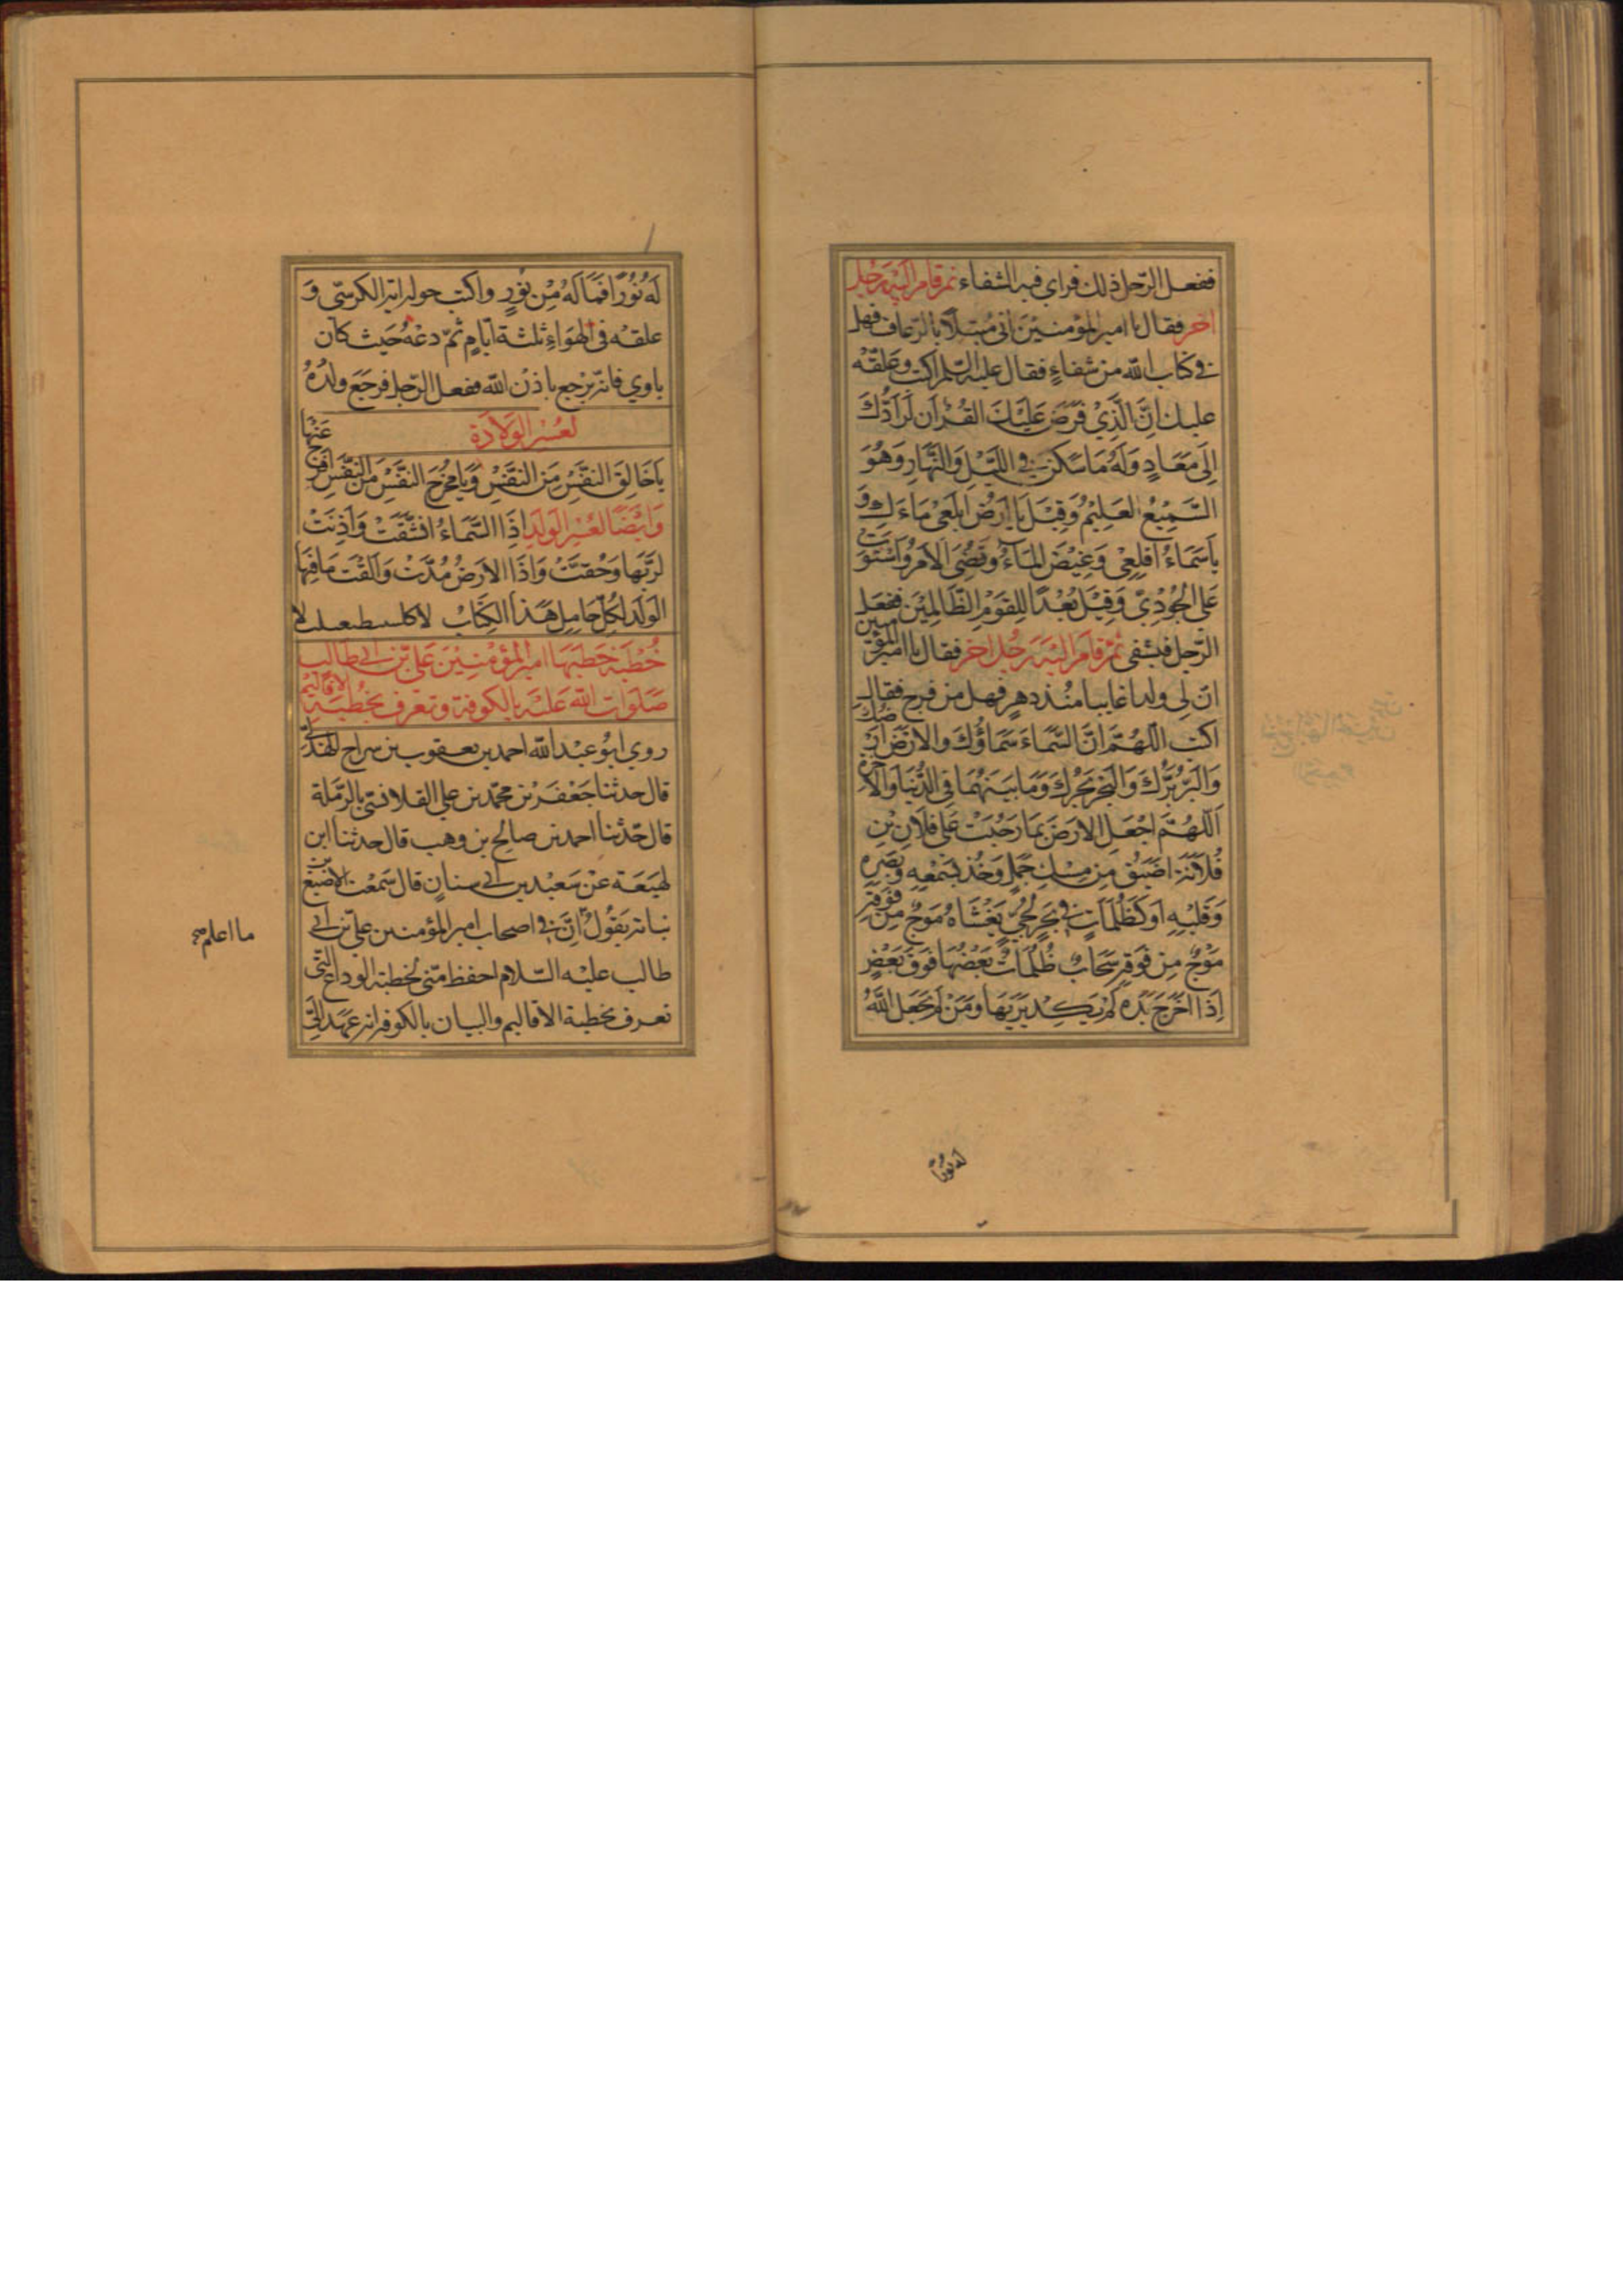 ففعل الرّجل ذلك فراى فيه الشفاء ثم قام اليه رجل
اخر فقال يا امير المؤمنين انى مبتلا بالرعاف فهل
فى كتاب الله من شفاء فقال عليه السلم اكتب وعلقه
عليك اِنَّ الَّذِيْ فَرَضَ عَلَيْكَ القُرْآنَ لَرَادُّكَ
اِلَى مَعَادٍ وَلَهُ مَا سَكَنَ فِي اللَّيْلِ وَالنَّهَارِ وَهُوَ
السَّمِيْعُ العَلِيْمُ وَقِيْلَ يَا اَرْضُ ابْلَعِى مَاءَكِ وَ
يَا سَمَاءُ اَقْلِعِى وَغِيْضَ المَاءُ وَقُضِىَ الاَمْرُ وَاسْتَوَتْ
عَلَى الجُوْدِيِّ وَقِيْلَ بُعْدًا لِلقَوْمِ الظَّالِمِيْنَ ففعل
الرّجل فشفى ثم قام اليه رجل اخر فقال يا امير المؤمنين
انّ لى ولدا غايبا منذ دهر فهل من فرج فقال
اكتب اللّهُمَّ اِنَّ السَّمَاءَ سَمَاؤُكَ وَالاَرْضَ اَرْضُكَ
وَالبَرَّ بَرُّكَ وَالبَحْرَ بَحْرُكَ وَمَا بَيْنَهُمَا فِى الدُّنْيَا وَالاخِرَةِ
اَللّهُمَّ اجْعَلِ الاَرْضَ بِمَا رَحُبَتْ عَلَى فُلَانِ بْنِ
فُلَانَةَ اَضْيَقَ مِنْ مَسْكِ جَمَلٍ وَخُذْ بِسَمْعِهِ وَبَصَرِهِ
وَقَلْبِهِ اَوْ كَظُلُمَاتٍ فِي بَحْرٍ لُجِّيٍّ يَغْشَاهُ مَوْجٌ مِنْ فَوْقِهِ
مَوْجٌ مِنْ فَوْقِهِ سَحَابٌ ظُلُمَاتٌ بَعْضُهَا فَوْقَ بَعْضٍ
اِذَا اَخْرَجَ يَدَهُ لَمْ يَكَدْ يَرَيهَا وَمَنْ لَمْ يَجْعَلِ اللّهُ
له نورًا
لَهُ نُوْرًا فَمَا لَهُ مِنْ نُوْرٍ واكتب حوله اية الكرسى و
علقه فى الهواء ثلثة ايام ثم دعه حيث كان
ياوي فانه يرجع باذن الله ففعل الرّجل فرجع ولده
لعسر الولادة
يَا خَالِقَ النَّفْسِ مِنَ النَّفْسِ وَيَا مُخْرِجَ النَّفْسِ مِنَ النَّفْسِ فَرِّجْ عَنْهَا
وَايضًا لعسر الولد اِذَا السَّمَاءُ انْشَقَّتْ وَاَذِنَتْ
لِرَبِّهَا وَحُقَّتْ وَاِذَا الاَرْضُ مُدَّتْ وَاَلْقَتْ مَا فِيْهَا
الوَلَد لكُلّ حَامِل هَذا الكِتَابُ
خُطْبَة خَطَبَهَا امير المؤمنين على بن ابى طالب
صلوات الله عليه بالكوفة وتعرف بخطبة الاقاليم
روي ابو عبد الله احمد بن يعقوب بن سراج
قال حدثنا جعفر بن محمّد بن علي القلانسى بالرملة
قال حدّثنا احمد بن صالح بن وهب قال حدثنا ابن
لهيعة عن سعيد بن ابى سنان قال سمعت الاصبغ بن
نباتة يقول انّ فى اصحاب امير المؤمنين على بن ابى
طالب عليه السّلام احفظ منّى لخطبة الوداع التى
تعرف بخطبة الاقاليم والبيان بالكوفة انه عهد الىّ
ما اعلم صح